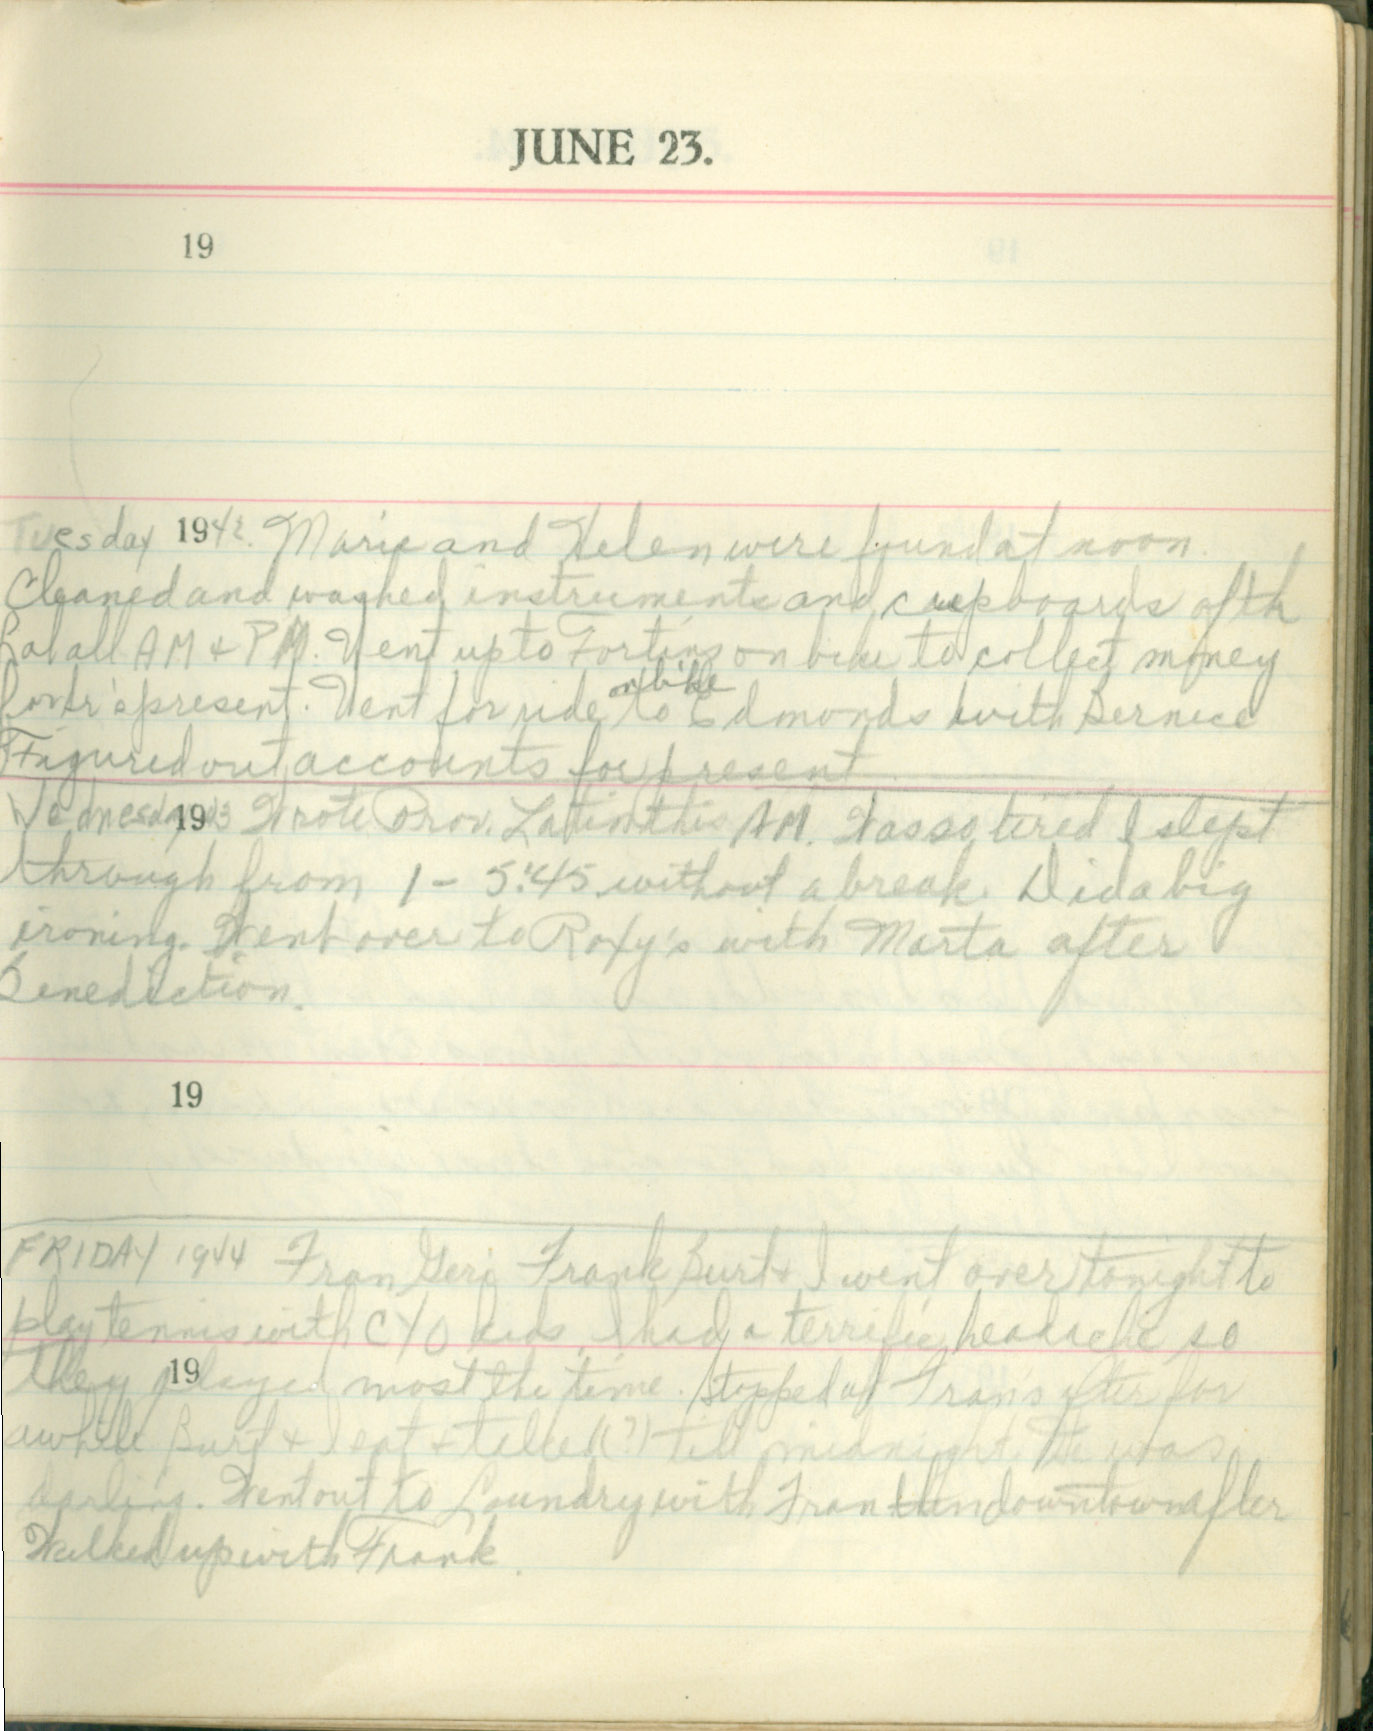 JUNE 23.
19
Tuesday 1942. Marie and Helen were found at noon.
Cleaned and washed instruments and cupboards of th
Lab all AM & PM. Went up to Fortins on bike to collect money
for present. Went for ride on bike to Edmonds with Bernice
Figured out accounts for present
Wednesday 1943 Wrote Prov. Latin this AM. Was so tired I slept
through from 1 - 5:45 without a break. Did a big
ironing. Went over to Roxy's with Marta after
Benediction.
19
FRIDAY 1944 Fran Geri Frank Burt & I went over tonight to
play tennis with CYO kids. I had a terrific headache so
19
they played most the time. Stopped at Fran's after for
awhile Burt & I eat & talked(?) till midnight. He was
darling. Went out to Laundry with Fran then downtown after
Walked up with Frank.